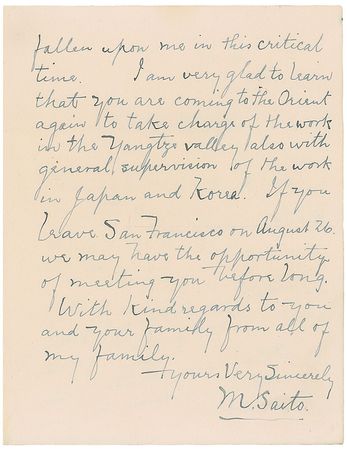 fallen upon me in this critical
time. I am very glad to learn
that you are coming to the Orient
again to take charge of the work
in the Yangtze valley also with
general supervision of the work
in Japan and Korea. If you
leave San Francisco on August 26.
we may have the opportunity
of meeting you before long.
With kind regards to you
and your family from all of
my family.
Yours Very Sincerely
M. Saito.